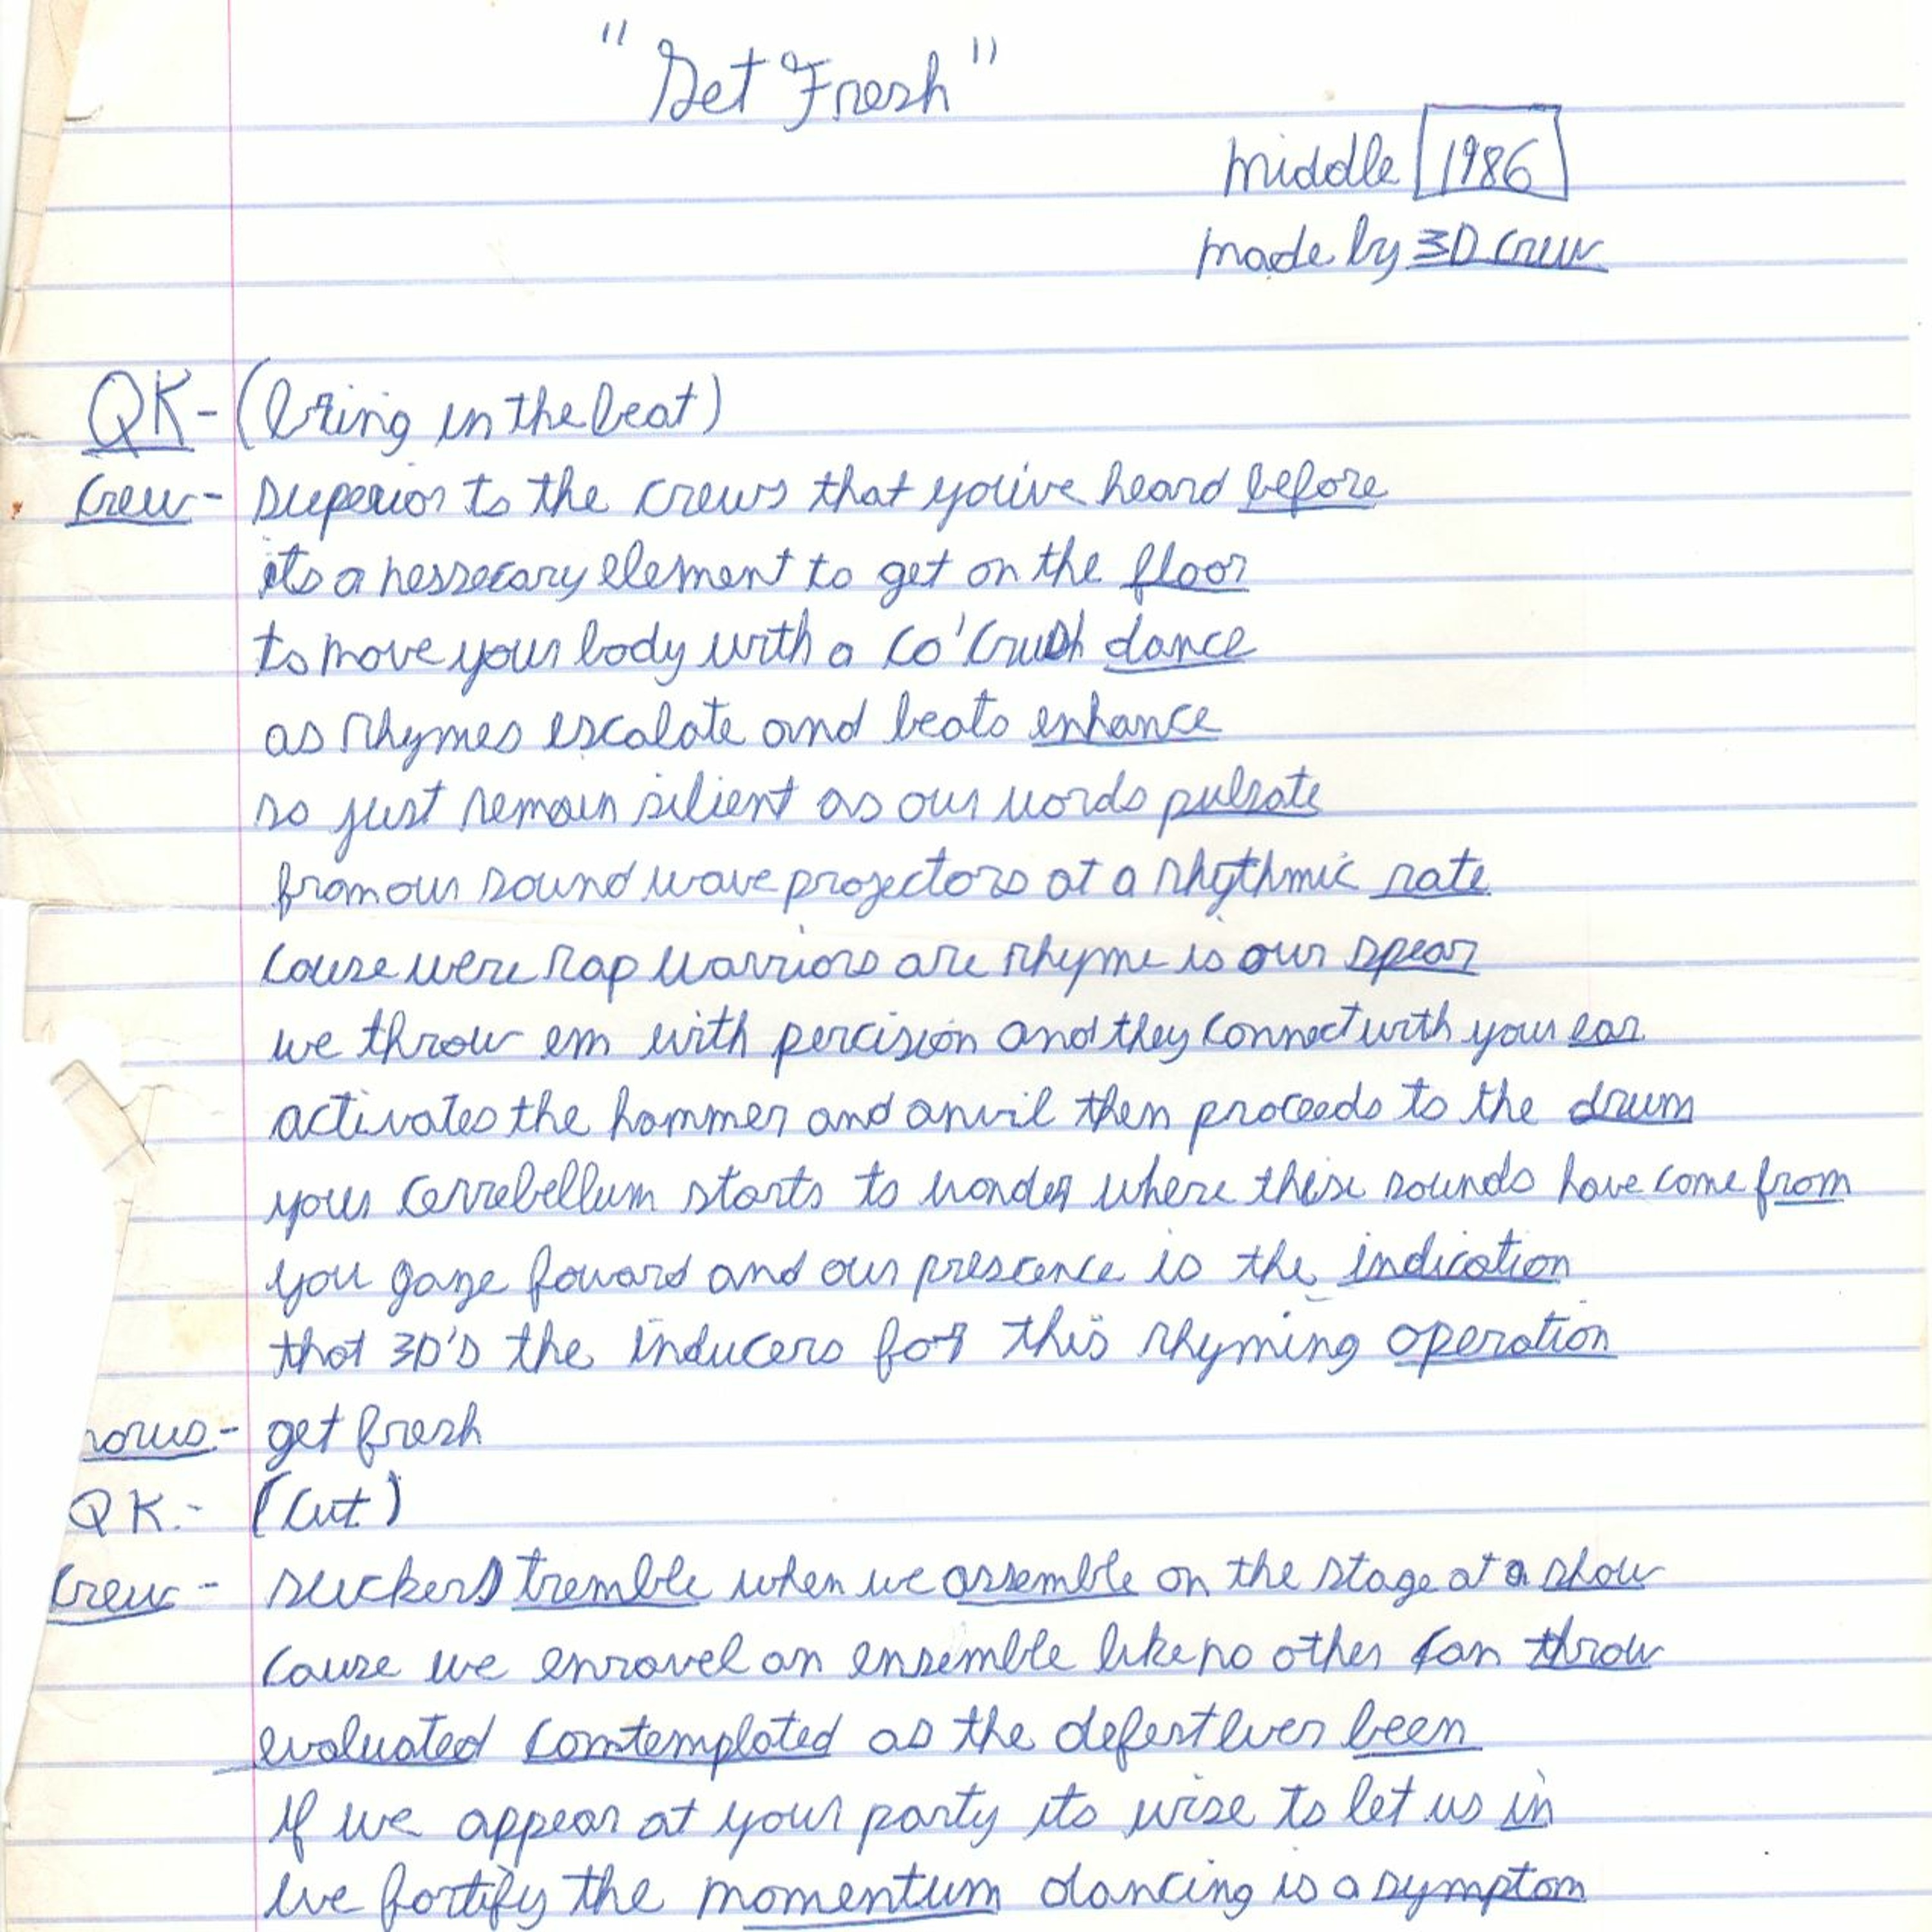 "Get Fresh"
middle 1986
made by 3D Crew
QK- (bring in the beat)
Crew- superior to the crews that you've heard before
its a nessecary element to get on the floor
to move your body with a co'crush dance
as rhymes escalate and beats enhance
so just remain silient as our words pulsate
from our sound wave projectors at a rhythmic rate
cause were rap warriors are rhyme is our spear
we throw em with percision and they connect with your ear
activates the hammer and anvil then proceeds to the drum
your cerrebellum starts to wonder where these sounds have come from
you gaze foward and our prescence is the indication
that 3D's the inducers for this rhyming operation
horus- get fresh
QK.- (cut)
Crew- suckers tremble when we assemble on the stage at a show
cause we enravel an ensemble like no other can throw
evaluated comtemplated as the defest ever been
If we appear at your party its wise to let us in
we fortify the momentum dancing is a symptom